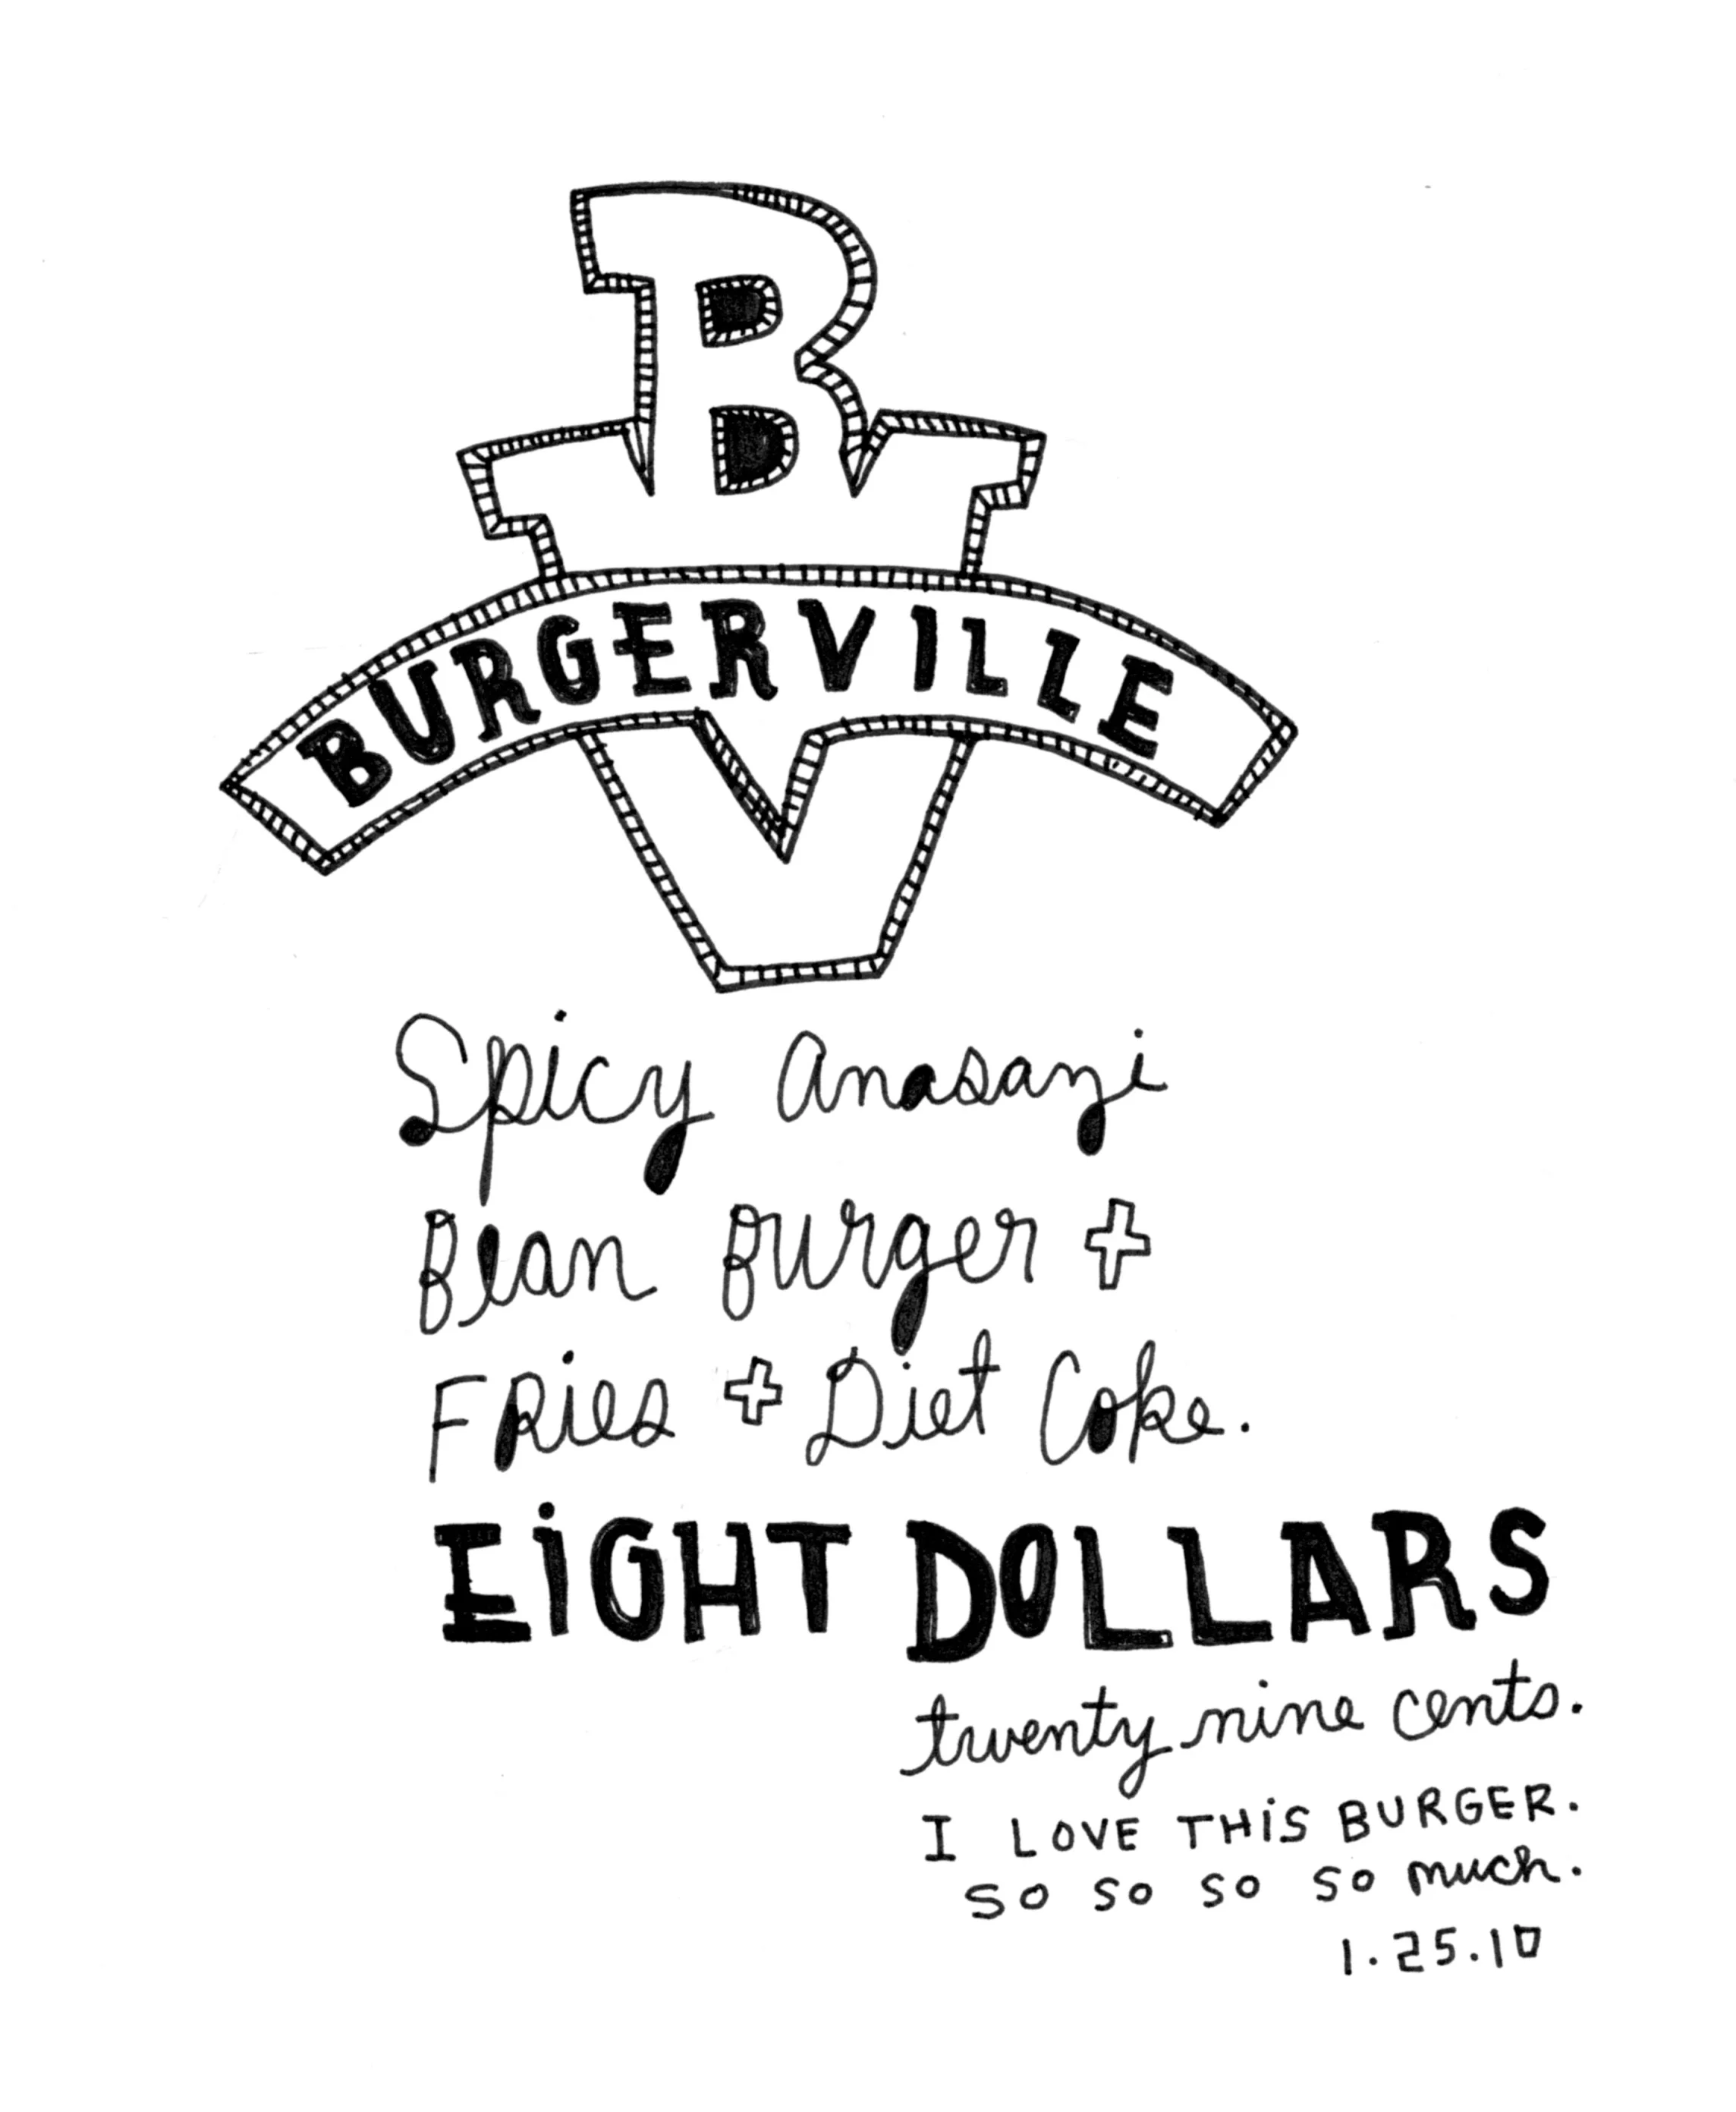 B
BURGERVILLE
V
Spicy Anasazi
Bean Burger +
FRies + Diet Coke.
EiGHT DOLLARS
twenty nine cents.
I LOVE THiS BURGER.
SO SO SO SO much.
1.25.10